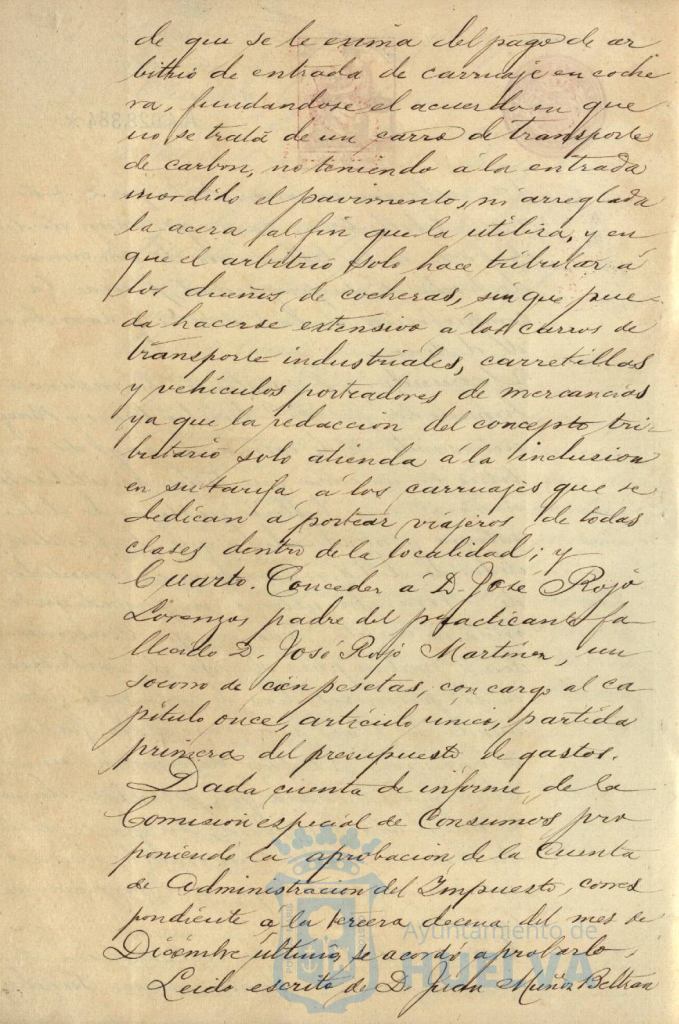 de que se le exima del pago de ar
bitrio de entrada de carruaje en coche
ra, fundandose el acuerdo en que
no se trata de un carro de transporte
de carbon, no teniendo á la entrada
mordido el pavimento, ni arreglada
la acera al fin que la utiliza, y en
que el arbitrio solo hace tributar á
los dueños de cocheras, sin que pue
da hacerse extensivo á los carros de
transporte industriales, carretillas
y vehículos porteadores de mercancias
ya que la redaccion del concepto tri-
butario solo atienda á la inclusion
en su tarifa á los carruajes que se
dedican á portear viajeros de todas
clases dentro de la localidad; y
Cuarto. Conceder á D. José Rojo
Lorenzo, padre del practicante fa
llecido D. José Rojo Martinez, un
socorro de cien pesetas, con cargo al ca
pítulo once, artículo único, partida
primera del presupuesto de gastos.
Dada cuenta de informe de la
Comision especial de Consumos pro
poniendo la aprobacion de la Cuenta
de Administracion del Impuesto, corres
pondiente á la tercera decena del mes de
Diciembre último, se acordó aprobarlo.
Leido escrito de D. Juan Muñoz Beltran
Ayuntamiento de
HUELVA